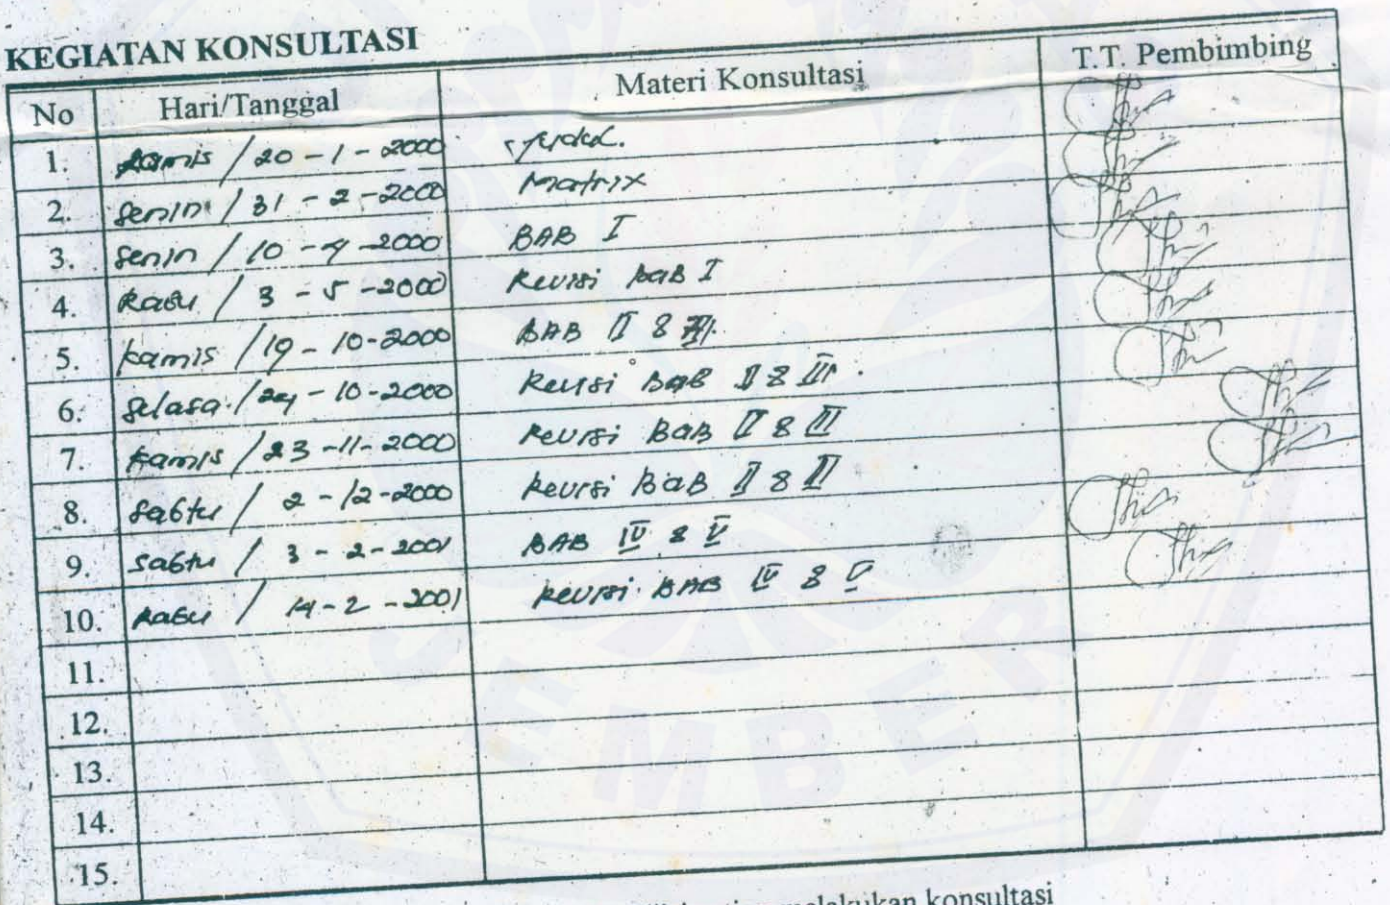 KEGIATAN KONSULTASI
No Hari/Tanggal Materi Konsultasi T.T. Pembimbing
1. Kamis / 20 - 1 - 2000 Judul.
2. Senin / 31 - 2 - 2000 Matrix
3. Senin / 10 - 4 - 2000 BAB I
4. Rabu / 3 - 5 - 2000 Revisi BaB I
5. Kamis / 19 - 10 - 2000 BAB II & III.
6. Selasa / 24 - 10 - 2000 Revisi BaB II & III.
7. Kamis / 23 - 11 - 2000 Revisi BaB II & III
8. Sabtu / 2 - 12 - 2000 Revisi BaB II & II
9. Sabtu / 3 - 2 - 2001 BAB IV & V
10. Rabu / 14 - 2 - 2001 Revisi BAB IV & V
11.
12.
13.
14.
15.
melakukan konsultasi
EMBER